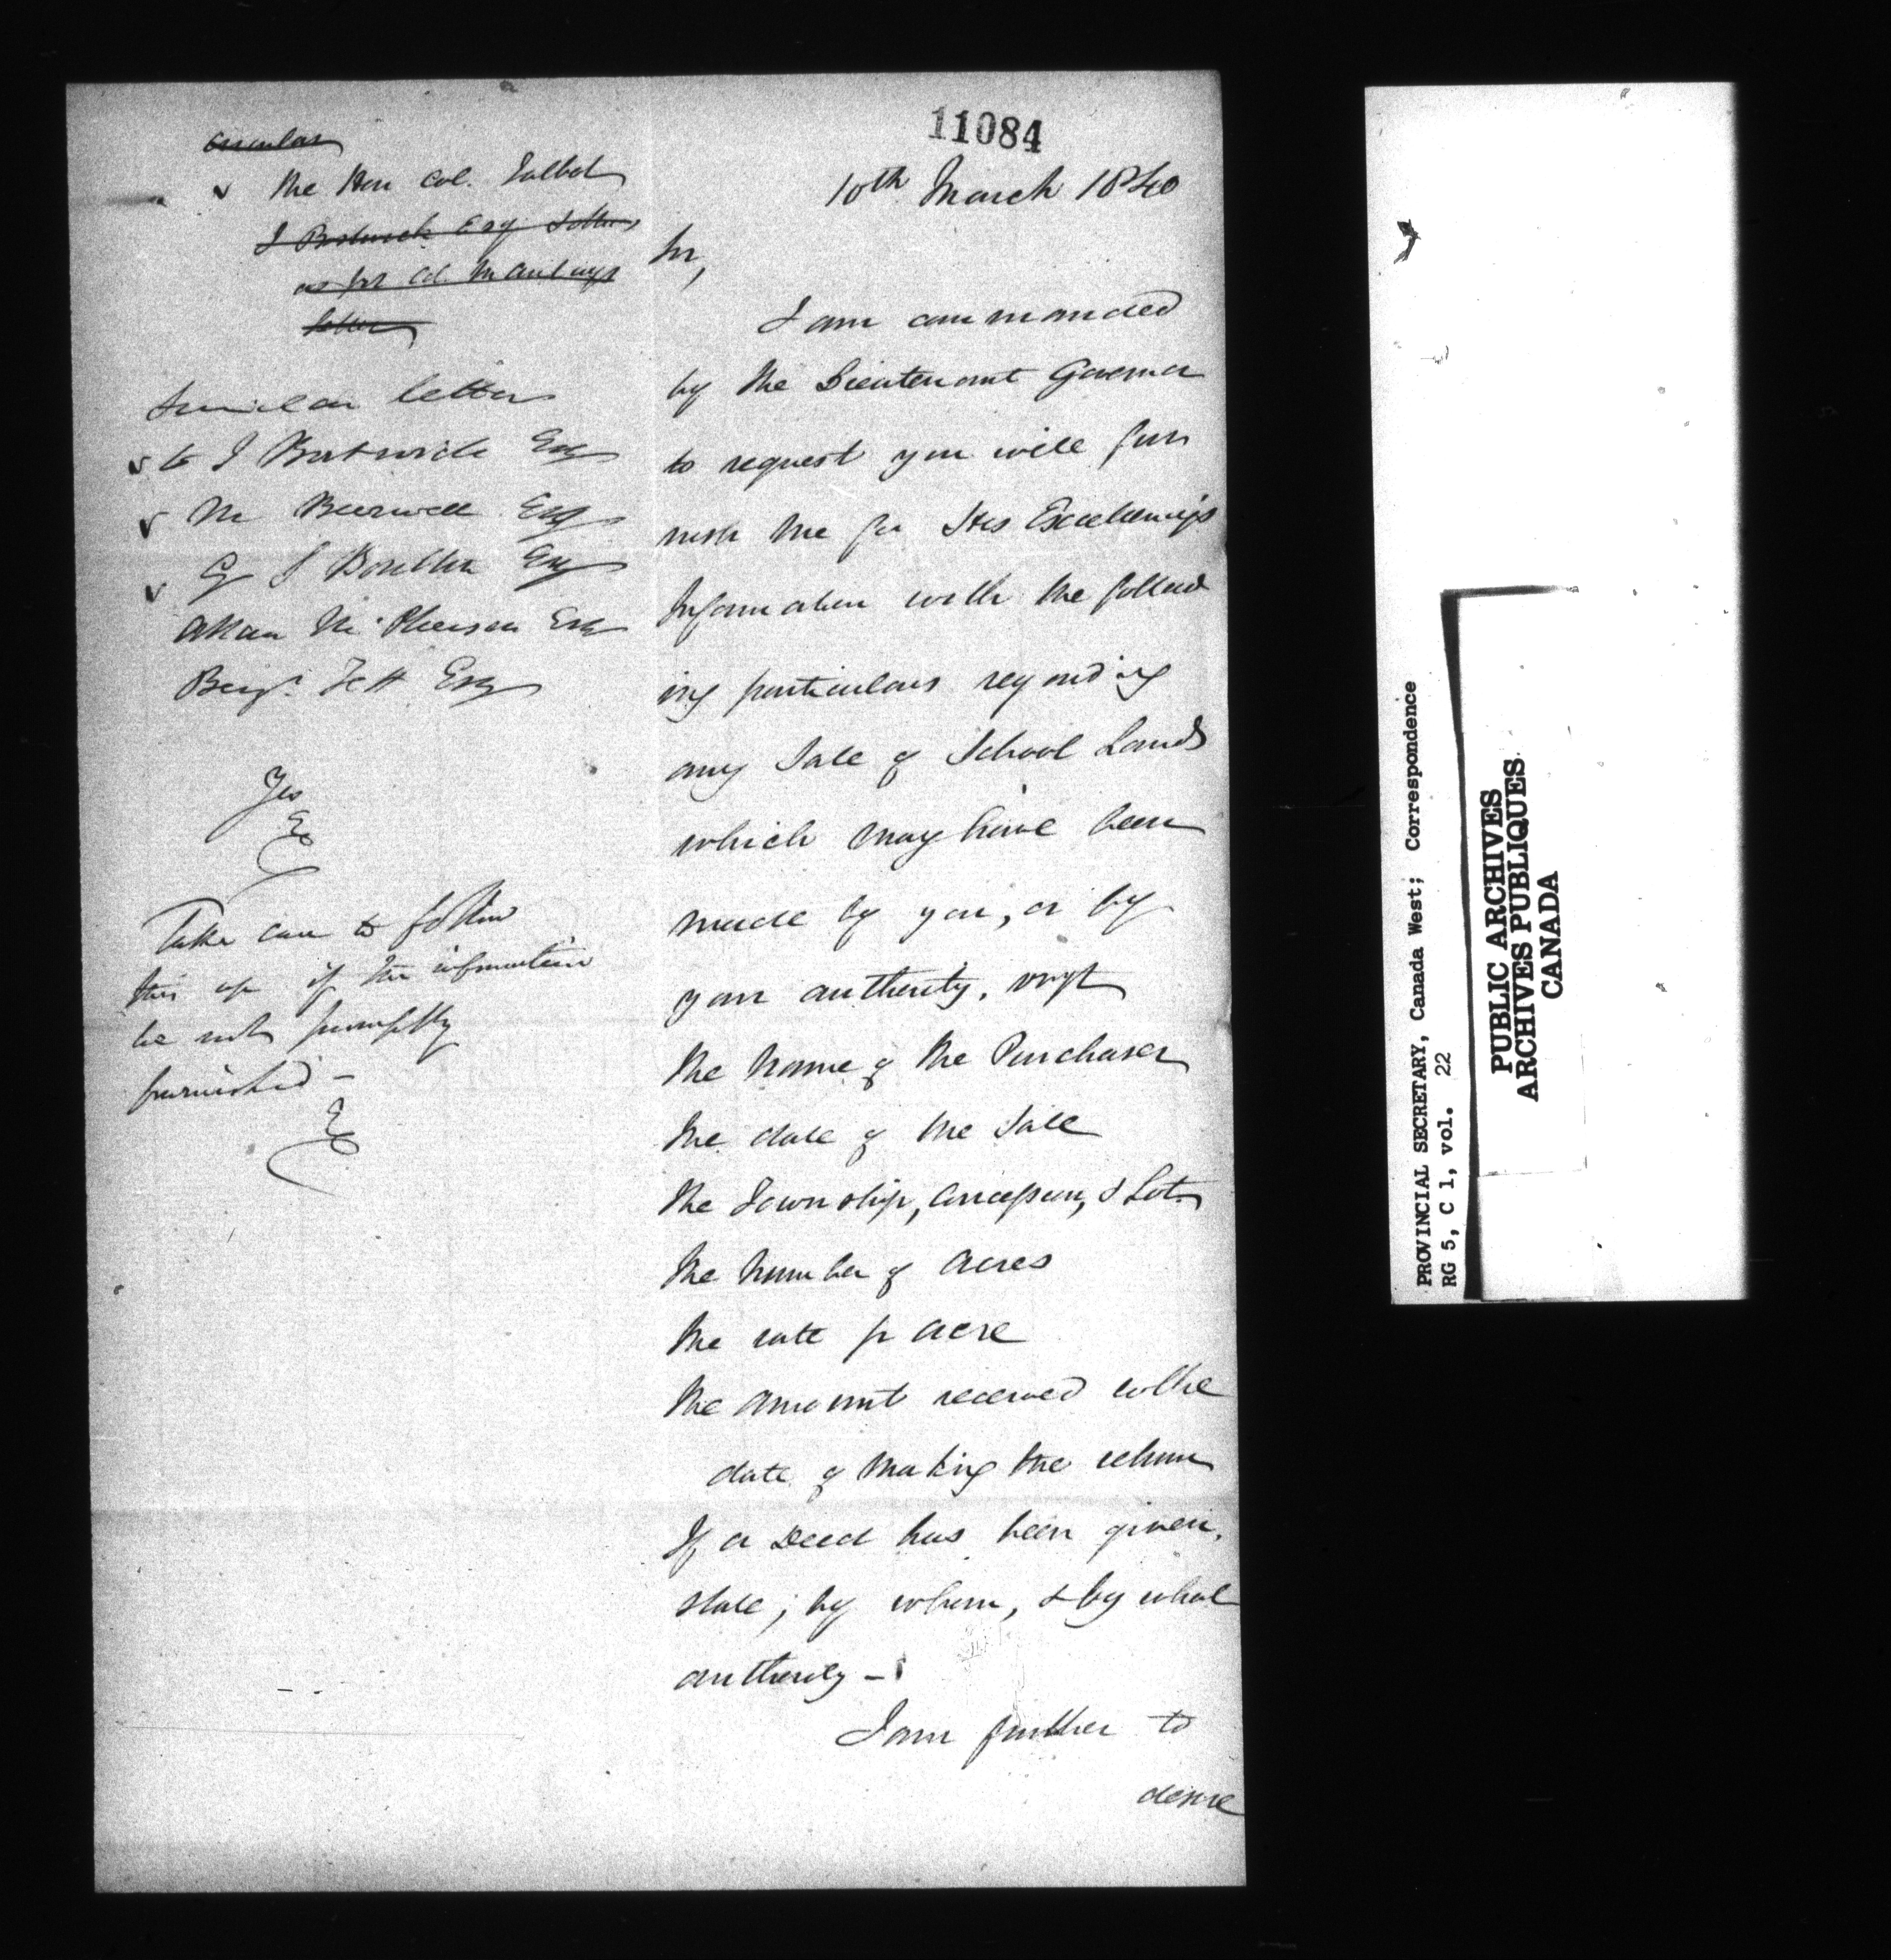 11084
circular
✓ The Hon Col. Talbot
J Bostwick Esq
as pr Col. Macaulays
letter
Similar letter
✓ to J Bostwick Esq
✓ M Burwell Esq
✓ G S Boulton Esq
Allan McPherson Esq
Benjn. Tett Esq
Yes
Take care to follow
this up if the information
be not promptly
furnished –
10th March 1840
Sir,
I am commanded
by the Lieutenant Governor
to request you will fur
nish me for His Excellency's
Information with the follow
ing particulars regarding
any Sale of School Lands
which may have been
made by you, or by
your authority, vizt
The Name of the Purchaser
The date of the Sale
The Township, Concession, & Lot
The Number of Acres
The rate pr acre
The amount received to the
date of making the return
If a Deed has been given,
state; by whom, & by what
authority –
I am further to
desire
PROVINCIAL SECRETARY, Canada West; Correspondence
RG 5, C 1, vol. 22
PUBLIC ARCHIVES
ARCHIVES PUBLIQUES
CANADA